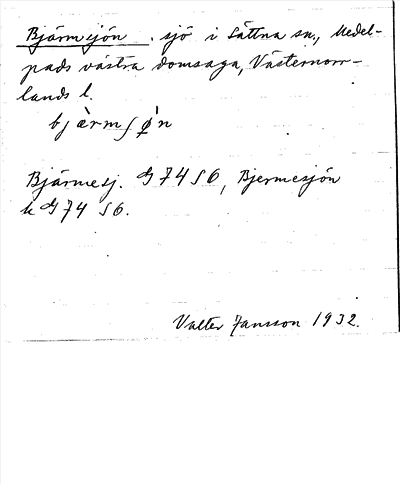 Bjärmsjön . sjö i Sättna sn., Medel-
pads västra domsaga, Västernorr-
lands l.
bjæ̀rmʃǿn
Bjärmesj. G 74 S6, Bjermesjön
k G 74 S6.
Valter Jansson 1932.